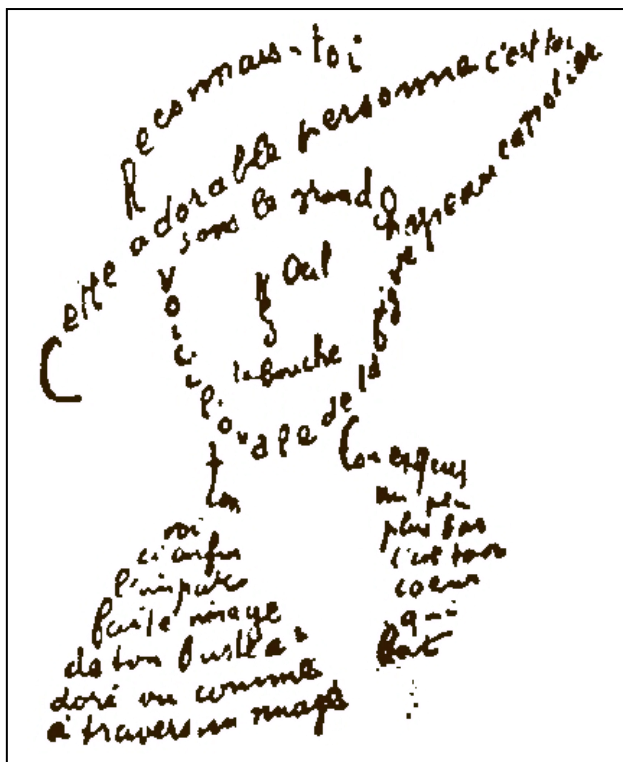 Reconnais-toi
Cette adorable personne c'est toi
sous le grand chapeau canotier
Oeil
la bouche
voici l'ovale de la figure
ton
cou exquis
voi
ci enfin
l'impar
faite image
de ton buste a
doré vu comme
à travers un nuage
un peu
plus bas
c'est ton
coeur
qui
bat